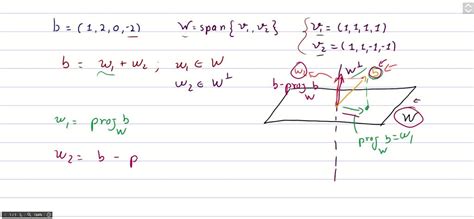 b = (1, 2, 0, -2) W = span{v₁, v₂} { v₁ = (1, 1, 1, 1)
v₂ = (1, 1, -1, -1)
b = w₁ + w₂ ; w₁ ∈ W
w₂ ∈ W⊥
w₂ W⊥ b
b - proj_W b
W
w₁ = proj_W b
proj_W b = w₁
w₂ = b - p